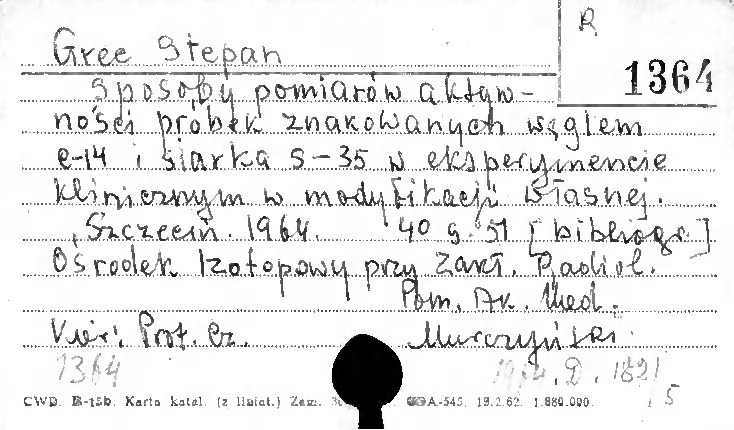 R
1364
Grec Stepan
Sposoby pomiarów aktyw-
ności próbek znakowanych węglem
c-14 i siarką S-35 w eksperymencie
klinicznym w modyfikacji własnej.
Szczecin. 1964. 40 s. 51 [bibliogr.]
Ośrodek Izotopowy przy Zakł. Radiol.
Pom. Ak. Med.
Kier: Prof. Cz. Murczyński.
1364
D. 182/5
CWD. B-15b. Karta katal. (z liniat.) Zam. A-545. 18.2.62. 1.880.000.